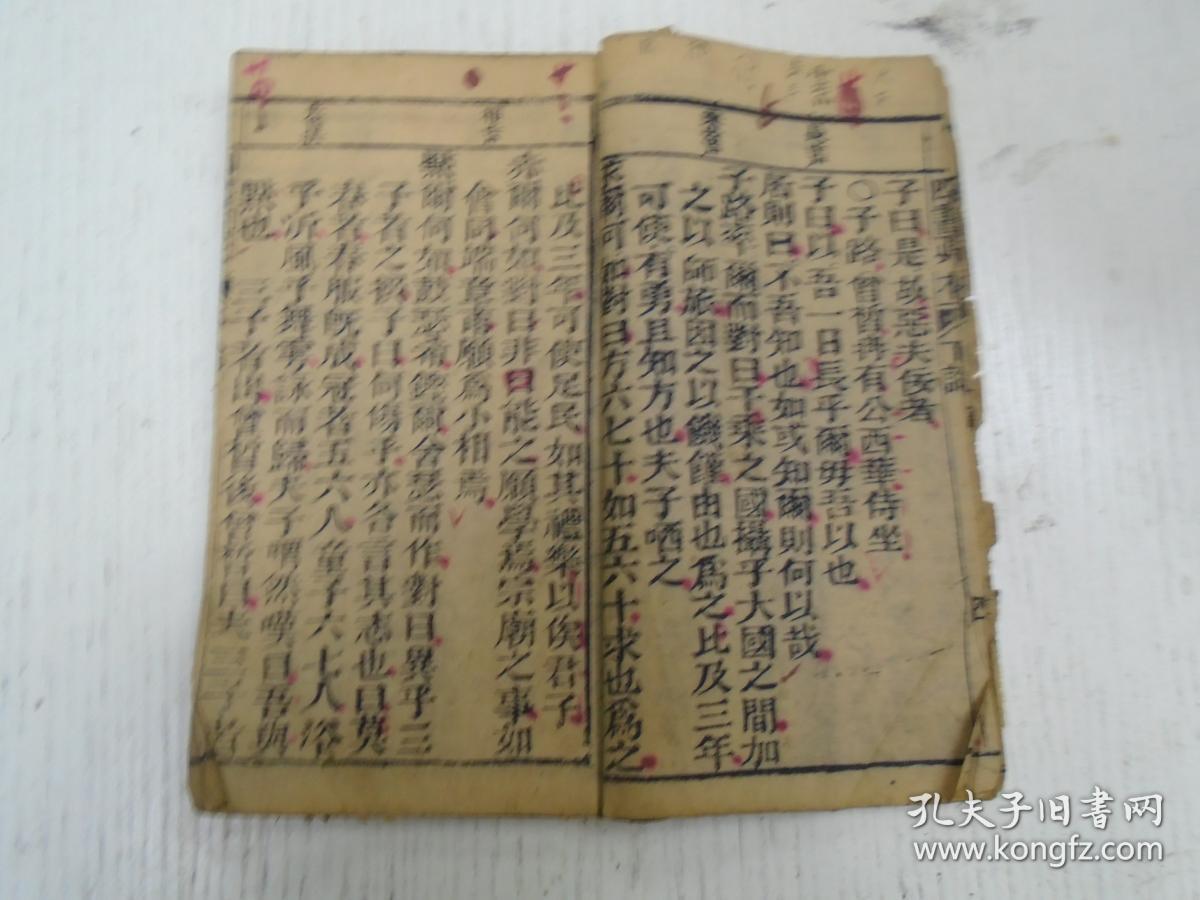 子曰是故惡夫佞者
○子路曾皙冉有公西華侍坐
子曰以吾一日長乎爾毋吾以也
居則曰不吾知也如或知爾則何以哉
子路率爾而對曰千乘之國攝乎大國之間加
之以師旅因之以饑饉由也為之比及三年
可使有勇且知方也夫子哂之
求爾何如對曰方六七十如五六十求也為之
比及三年可使足民如其禮樂以俟君子
赤爾何如對曰非曰能之願學焉宗廟之事如
會同端章甫願為小相焉
點爾何如鼓瑟希鏗爾舍瑟而作對曰異乎三
子者之撰子曰何傷乎亦各言其志也曰莫
春者春服既成冠者五六人童子六七人浴
乎沂風乎舞雩詠而歸夫子喟然嘆曰吾與
點也 三子者出曾皙後曾皙曰夫三子者
孔夫子旧书网
www.kongfz.com